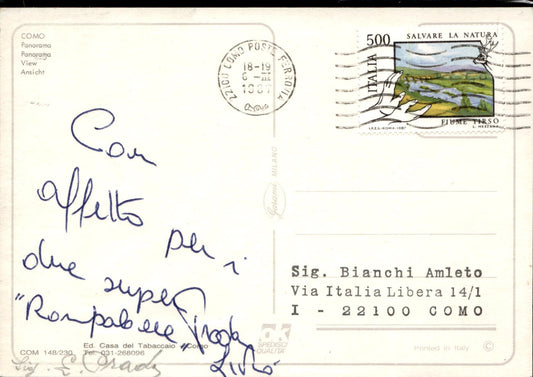 COMO
Panorama
Panorama
View
Ansicht
22100 COMO POSTE FERROVIA
18-19
1987
500
SALVARE LA NATURA
ITALIA
FIUME TIRSO
I.P.Z.S.-ROMA-1987
Con
affetto per i
due super
"Rompaballe
Garami MILANO
Sig. Bianchi Amleto
Via Italia Libera 14/1
I - 22100 COMO
COM 148/230
Ed. Casa del Tabaccaio - Como
Tel. 031-268096
SPEDISCI
QUALITA'
Printed in Italy ©